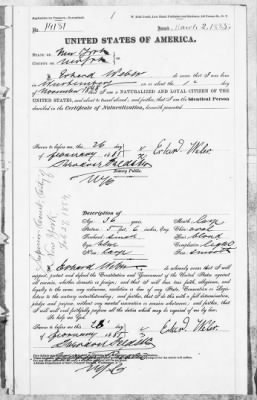 14131
Issued March 2, 1885
UNITED STATES OF AMERICA.
STATE OF New York
COUNTY OF New York
I, Erhard Weber do swear that I was born
in Wurtemberg on or about the
November; that I am a NATURALIZED AND LOYAL CITIZEN OF THE
UNITED STATES, and about to travel abroad; and further, that I am the Identical Person
described in the Certificate of Naturalization, herewith presented.
Sworn to before me this 26 day
of February 1885
Erhard Weber
Notary Public.
NYC
Superior Court, City of
New York
Description of
Age 36 years. Mouth Large
Stature 5 feet 6 inches, Eng. Chin oval
Forehead small Hair blond
Eyes blue Complexion Light
Nose Large Face smooth
I, Erhard Weber do solemnly swear that I will
support, protect and defend the Constitution and Government of the United States against
all enemies, whether domestic or foreign; and that I will bear true faith, allegiance, and
loyalty to the same, any ordinance, resolution or law of any State, Convention or Legis-
lature to the contrary notwithstanding; and further, that I do this with a full determination,
pledge and purpose, without any mental reservation or evasion whatsoever; and further, that
I will well and faithfully perform all the duties which may be required of me by law.
So help me God.
Sworn to before me this 26 day
of February 1885
Erhard Weber
NYC